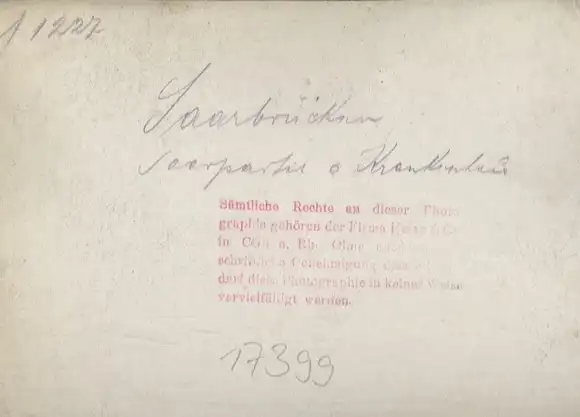 1927
Saarbrücken
Saarpartie
Sämtliche Rechte an dieser Photo
graphie gehören der Firma
in Cöln a. Rh. Ohne
Genehmigung
darf diese Photographie in keiner Weise
vervielfältigt werden.
17399